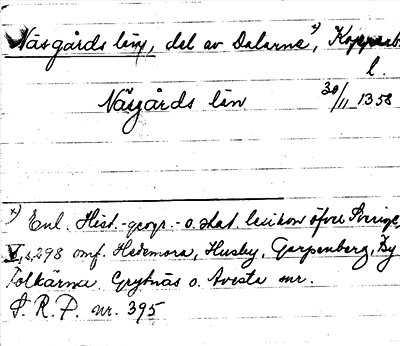 Näsgårds län, del av Dalarne x), Kopparb.
l.
Näsgårds län 30/11 1358
x) Enl. Hist.-geogr.- o. stat lexikon öfver Sverige,
V, s. 298 omf. Hedemora, Husby, Garpenberg, By
Folkärna, Grytnäs o. Avesta snr.
S. R. P. nr. 395